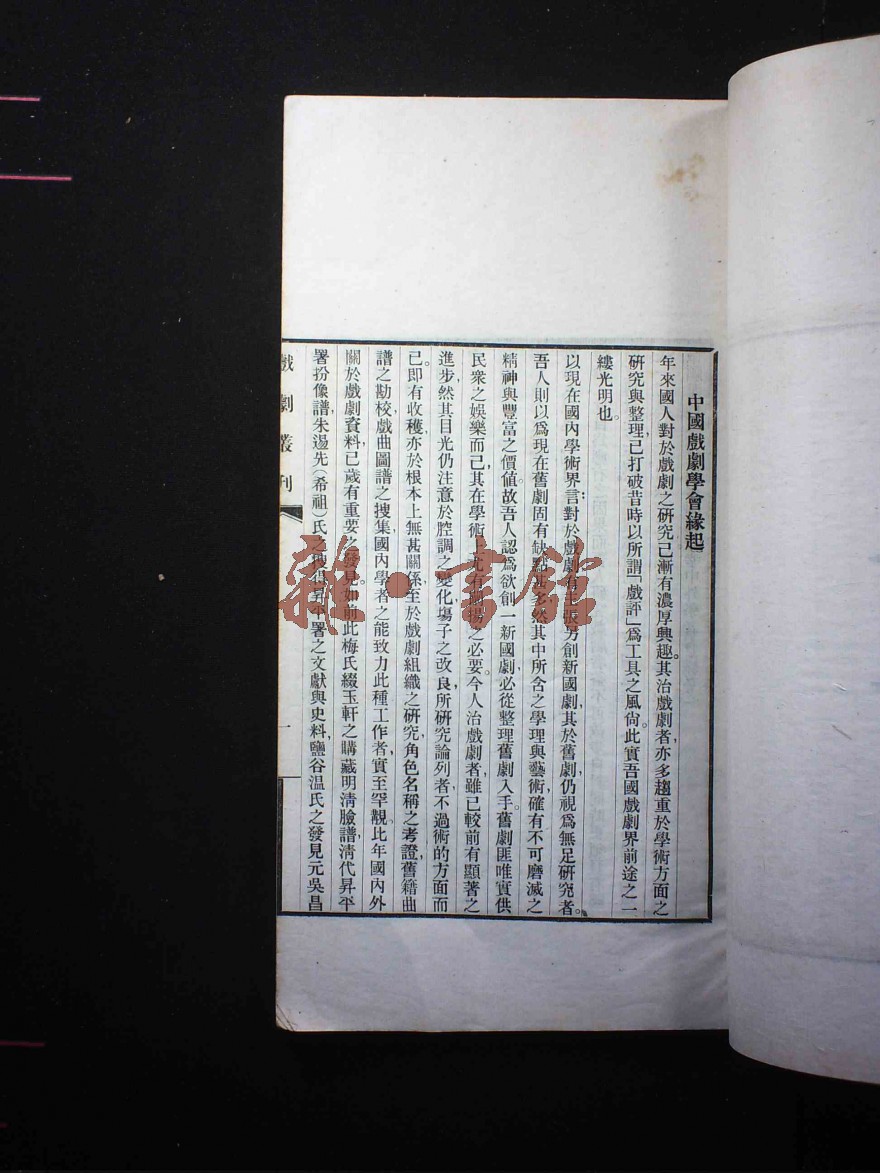 中國戲劇學會緣起
年來國人對於戲劇之硏究已漸有濃厚興趣。其治戲劇者亦多趨重於學術方面之
硏究與整理,已打破昔時以所謂「戲評」爲工具之風尙。此實吾國戲劇界前途之一
縷光明也。
以現在國內學術界言:對於戲劇有主張另創新國劇,其於舊劇仍視爲無足硏究者。
吾人則以爲現在舊劇固有缺點甚多,然其中所含之學理與藝術,確有不可磨滅之
精神與豐富之價値。故吾人認爲欲創一新國劇,必從整理舊劇入手。舊劇匪唯實供
民衆之娛樂而已,其在學術上尤有 揚之必要。今人治戲劇者,雖已較前有顯著之
進步,然其目光仍注意於腔調之變化,塲子之改良,所硏究論列者,不過術的方面而
已。即有收穫,亦於根本上無甚關係。至於戲劇組織之硏究,角色名稱之考證,舊籍曲
譜之勘校,戲曲圖譜之搜集,國內學者之能致力此種工作者,實至罕覯。比年國內外
關於戲劇資料已歲有重要之發見。如前此梅氏綴玉軒之購藏明淸臉譜,淸代昇平
署扮像譜,朱逷先(希祖)氏之搜得昇平署之文獻與史料,鹽谷温氏之發見元吳昌
戲劇叢刊
一
雜·書館